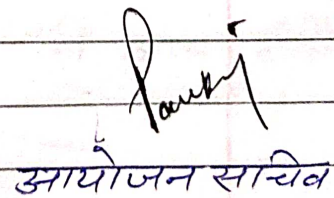 आयोजन सचिव